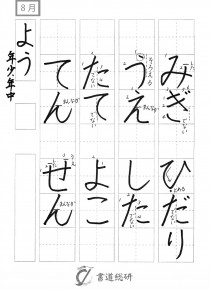 8月
よう
年少年中
みぎ
ひだり
うえ
した
たて
よこ
てん
せん
書道総研